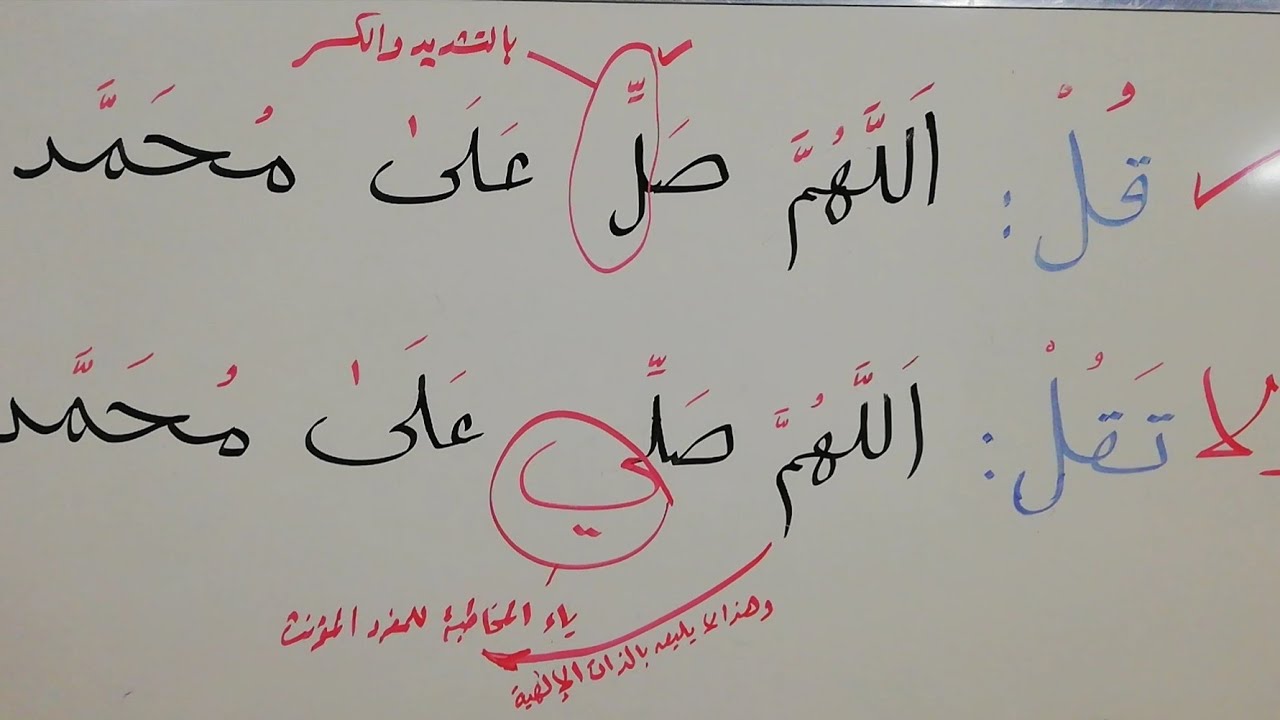 بالتشديد والكسر
قُلْ: اَللَّهُمَّ صَلِّ عَلَىٰ مُحَمَّد
لا تَقُلْ: اَللَّهُمَّ صَلِّي عَلَىٰ مُحَمَّد
ياء المخاطبة للمفرد المؤنث
وهذا لا يليق بالذات الإلهية